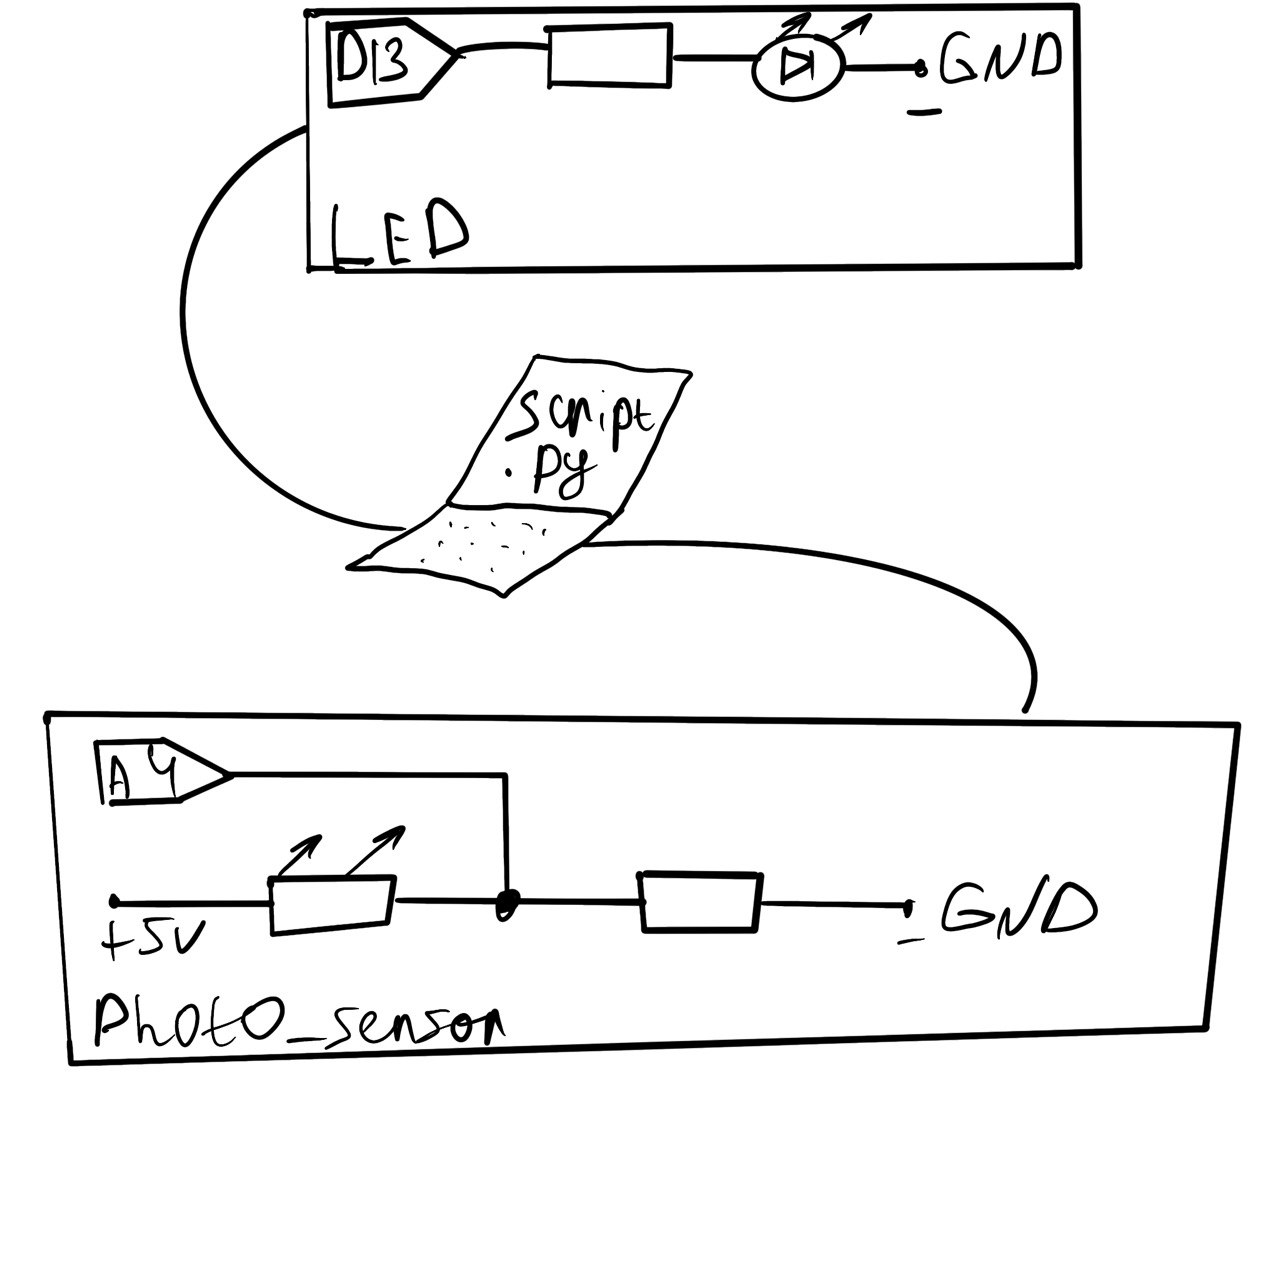 D13
GND
LED
script
.py
A4
+5V
GND
Photo_sensor